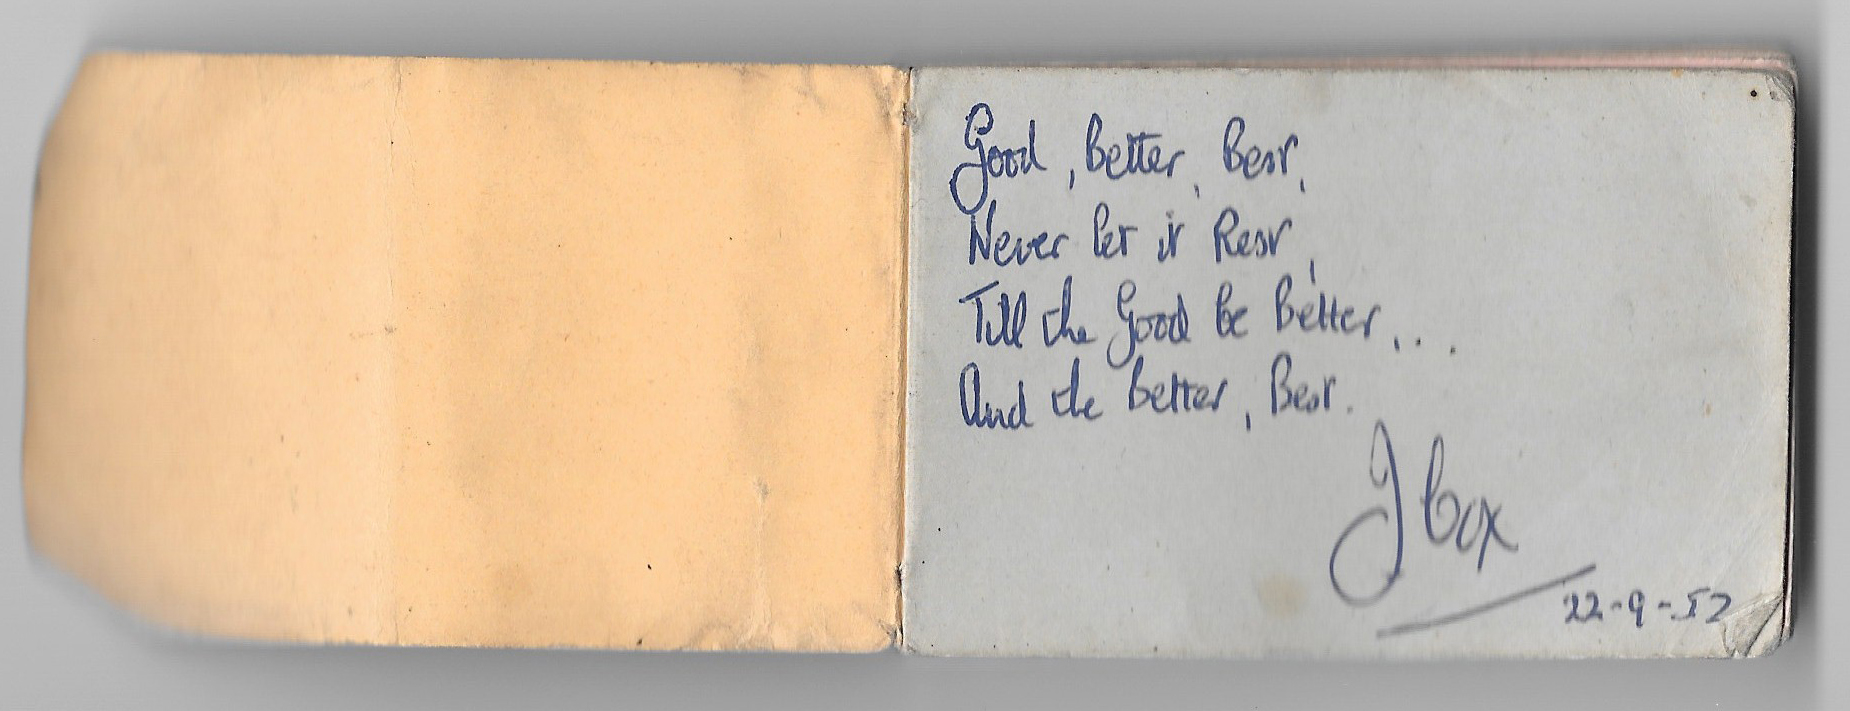 Good, Better, Best,
Never let it Rest,
Till the Good be Better...
And the Better, Best.
J Cox
22-9-52